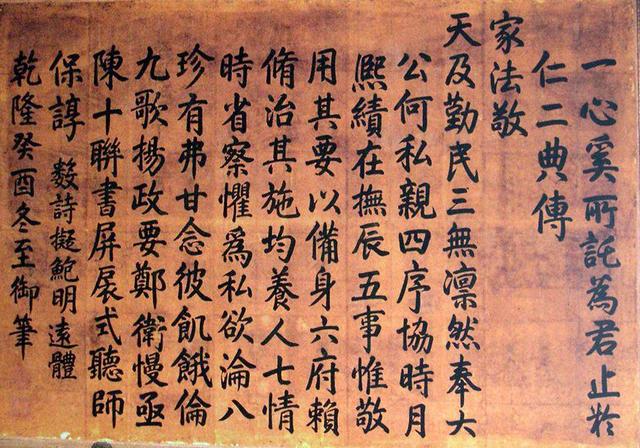 一心奚所託為君止於
仁二典傳
家法敬
天及勤民三無凛然奉大
公何私親四序協時月
熙績在撫辰五事惟敬
用其要以備身六府賴
脩治其施均養人七情
時省察懼為私欲淪八
珍有弗甘念彼飢餓倫
九歌揚政要鄭衛慢亟
陳十聯書屏扆式聽師
保諄 數詩擬鮑明遠體
乾隆癸酉冬至御筆